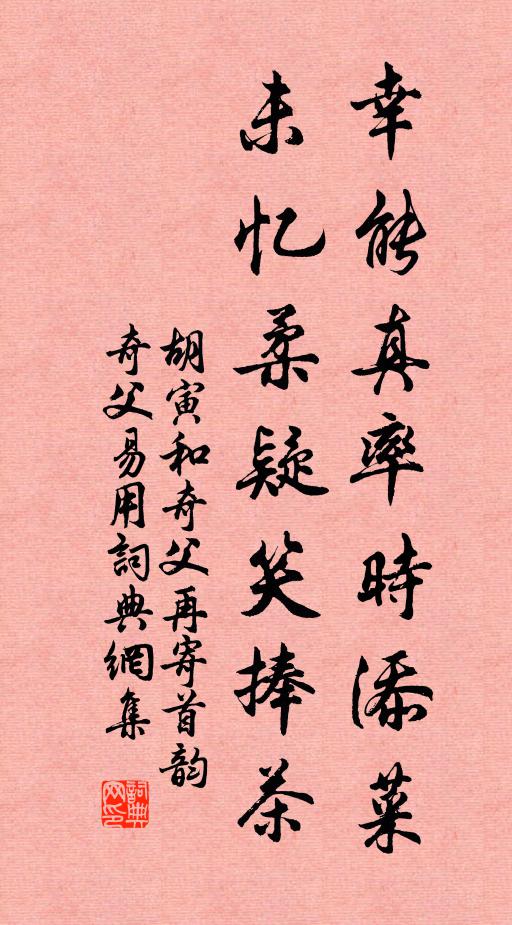 幸能真率時添菜
未忆柔疑笑捧茶
胡寅和奇父再寄首韵
奇父易用詞典網集
詞典
网印